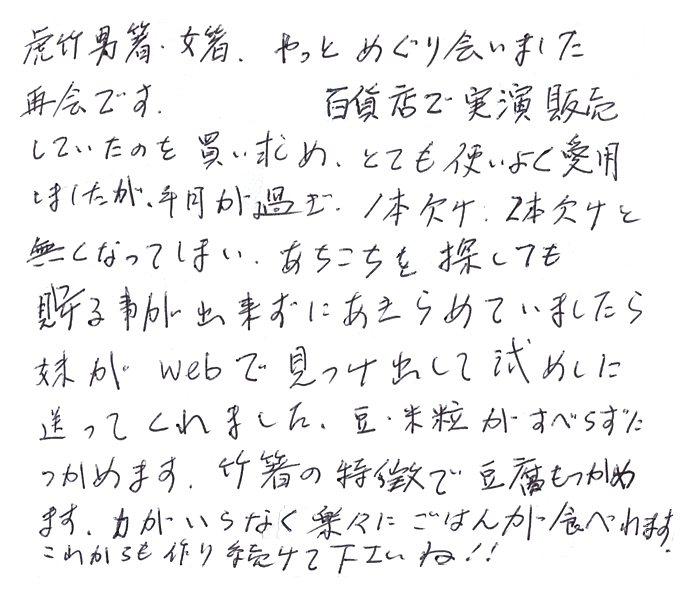 虎竹男箸・女箸、やっとめぐり会いました
再会です。 百貨店で実演販売
していたのを買い求め、とても使いよく愛用
しましたが、年月が過ぎ、1本欠け、2本欠けと
無くなってしまい、あちこちを探しても
買える事が出来ずにあきらめていましたら
妹がwebで見つけ出して試めしに
送ってくれました。豆・米粒がすべらずに
つかめます。竹箸の特徴で豆腐もつかめ
ます。力がいらなく楽々にごはんが食べれます。
これからも作り続けて下さいね!!